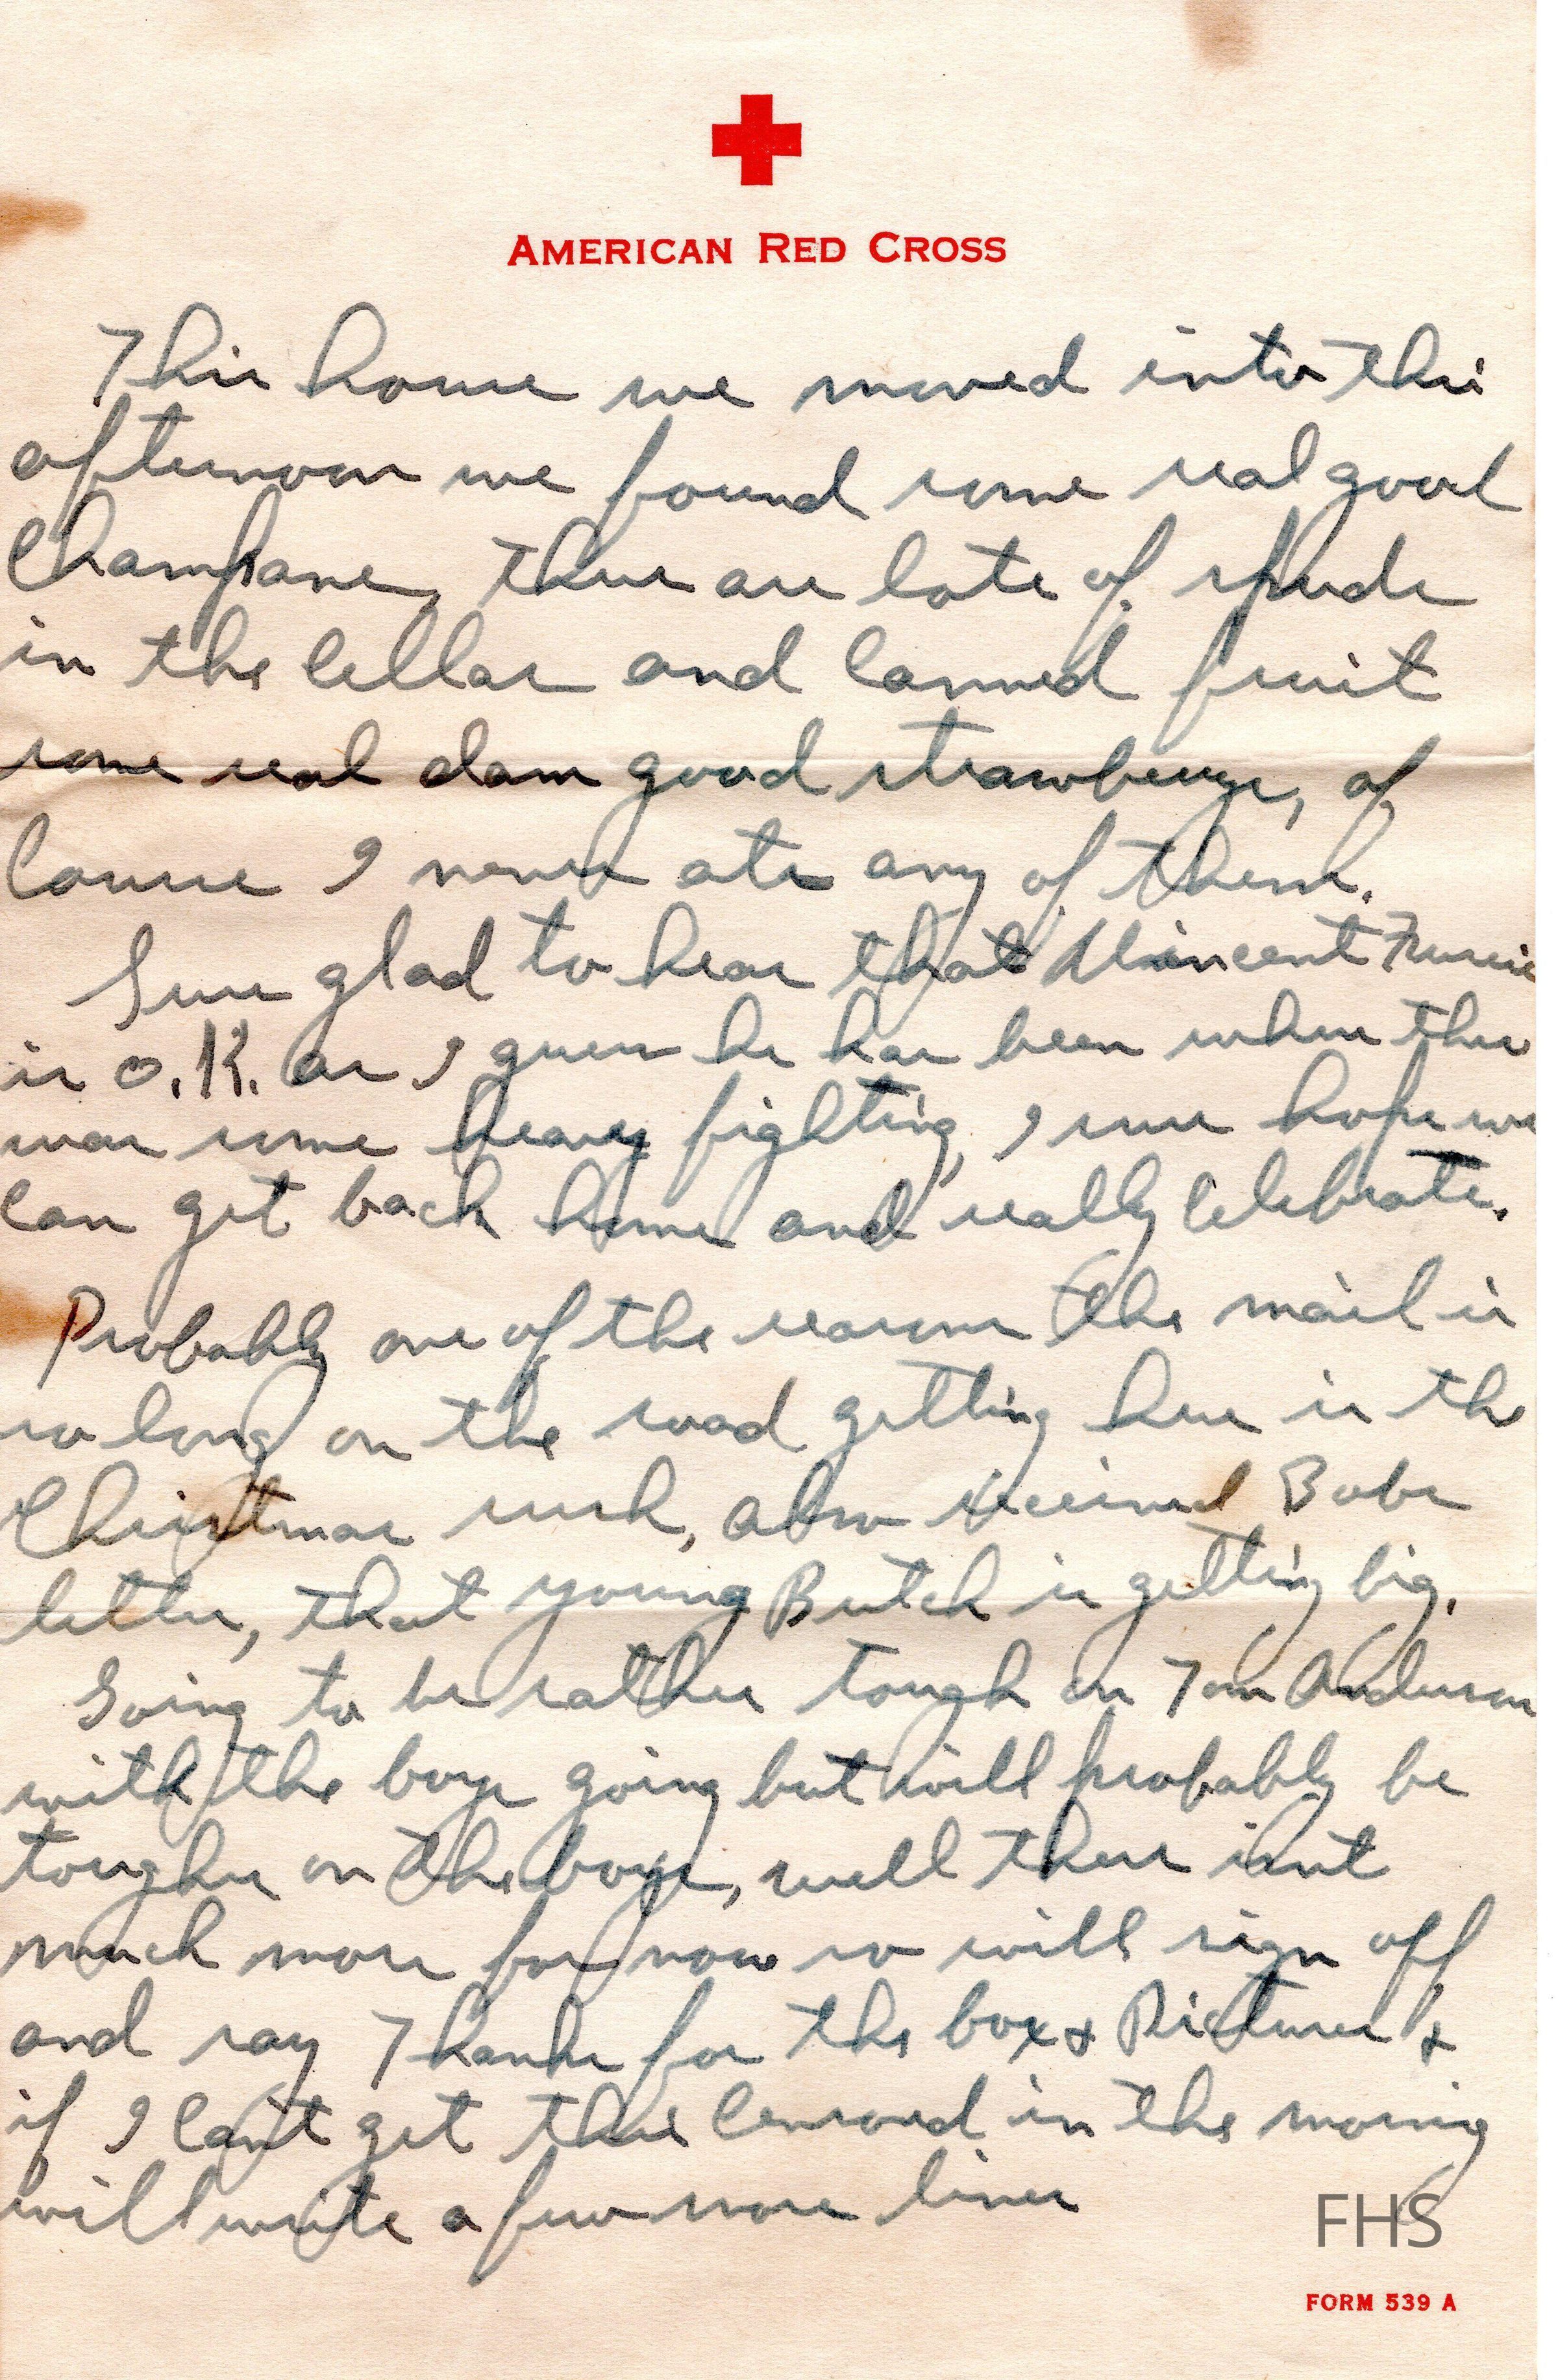 AMERICAN RED CROSS
This house we moved into this
afternoon we found some real good
Champane, there are lots of spuds
in the cellar and canned fruit
some real dam good strawberrys, of
course I never ate any of them.
Sure glad to hear that Vincent
is O.K. as I guess he has been where there
was some heavy fighting, I sure hope we
can get back home and really celebrate.
Probably one of the reasons the mail is
so long on the road getting here is the
Christmas rush, also received Bobs
letter, that young Butch is getting big.
Going to be rather tough on Tom Anderson
with the boys going but will probably be
tougher on the boys, well there isnt
much more for now so will sign off
and say Thanks for the box & Pictures &
if I can't get this censored in the moring
will write a few more lines
FHS
FORM 539 A